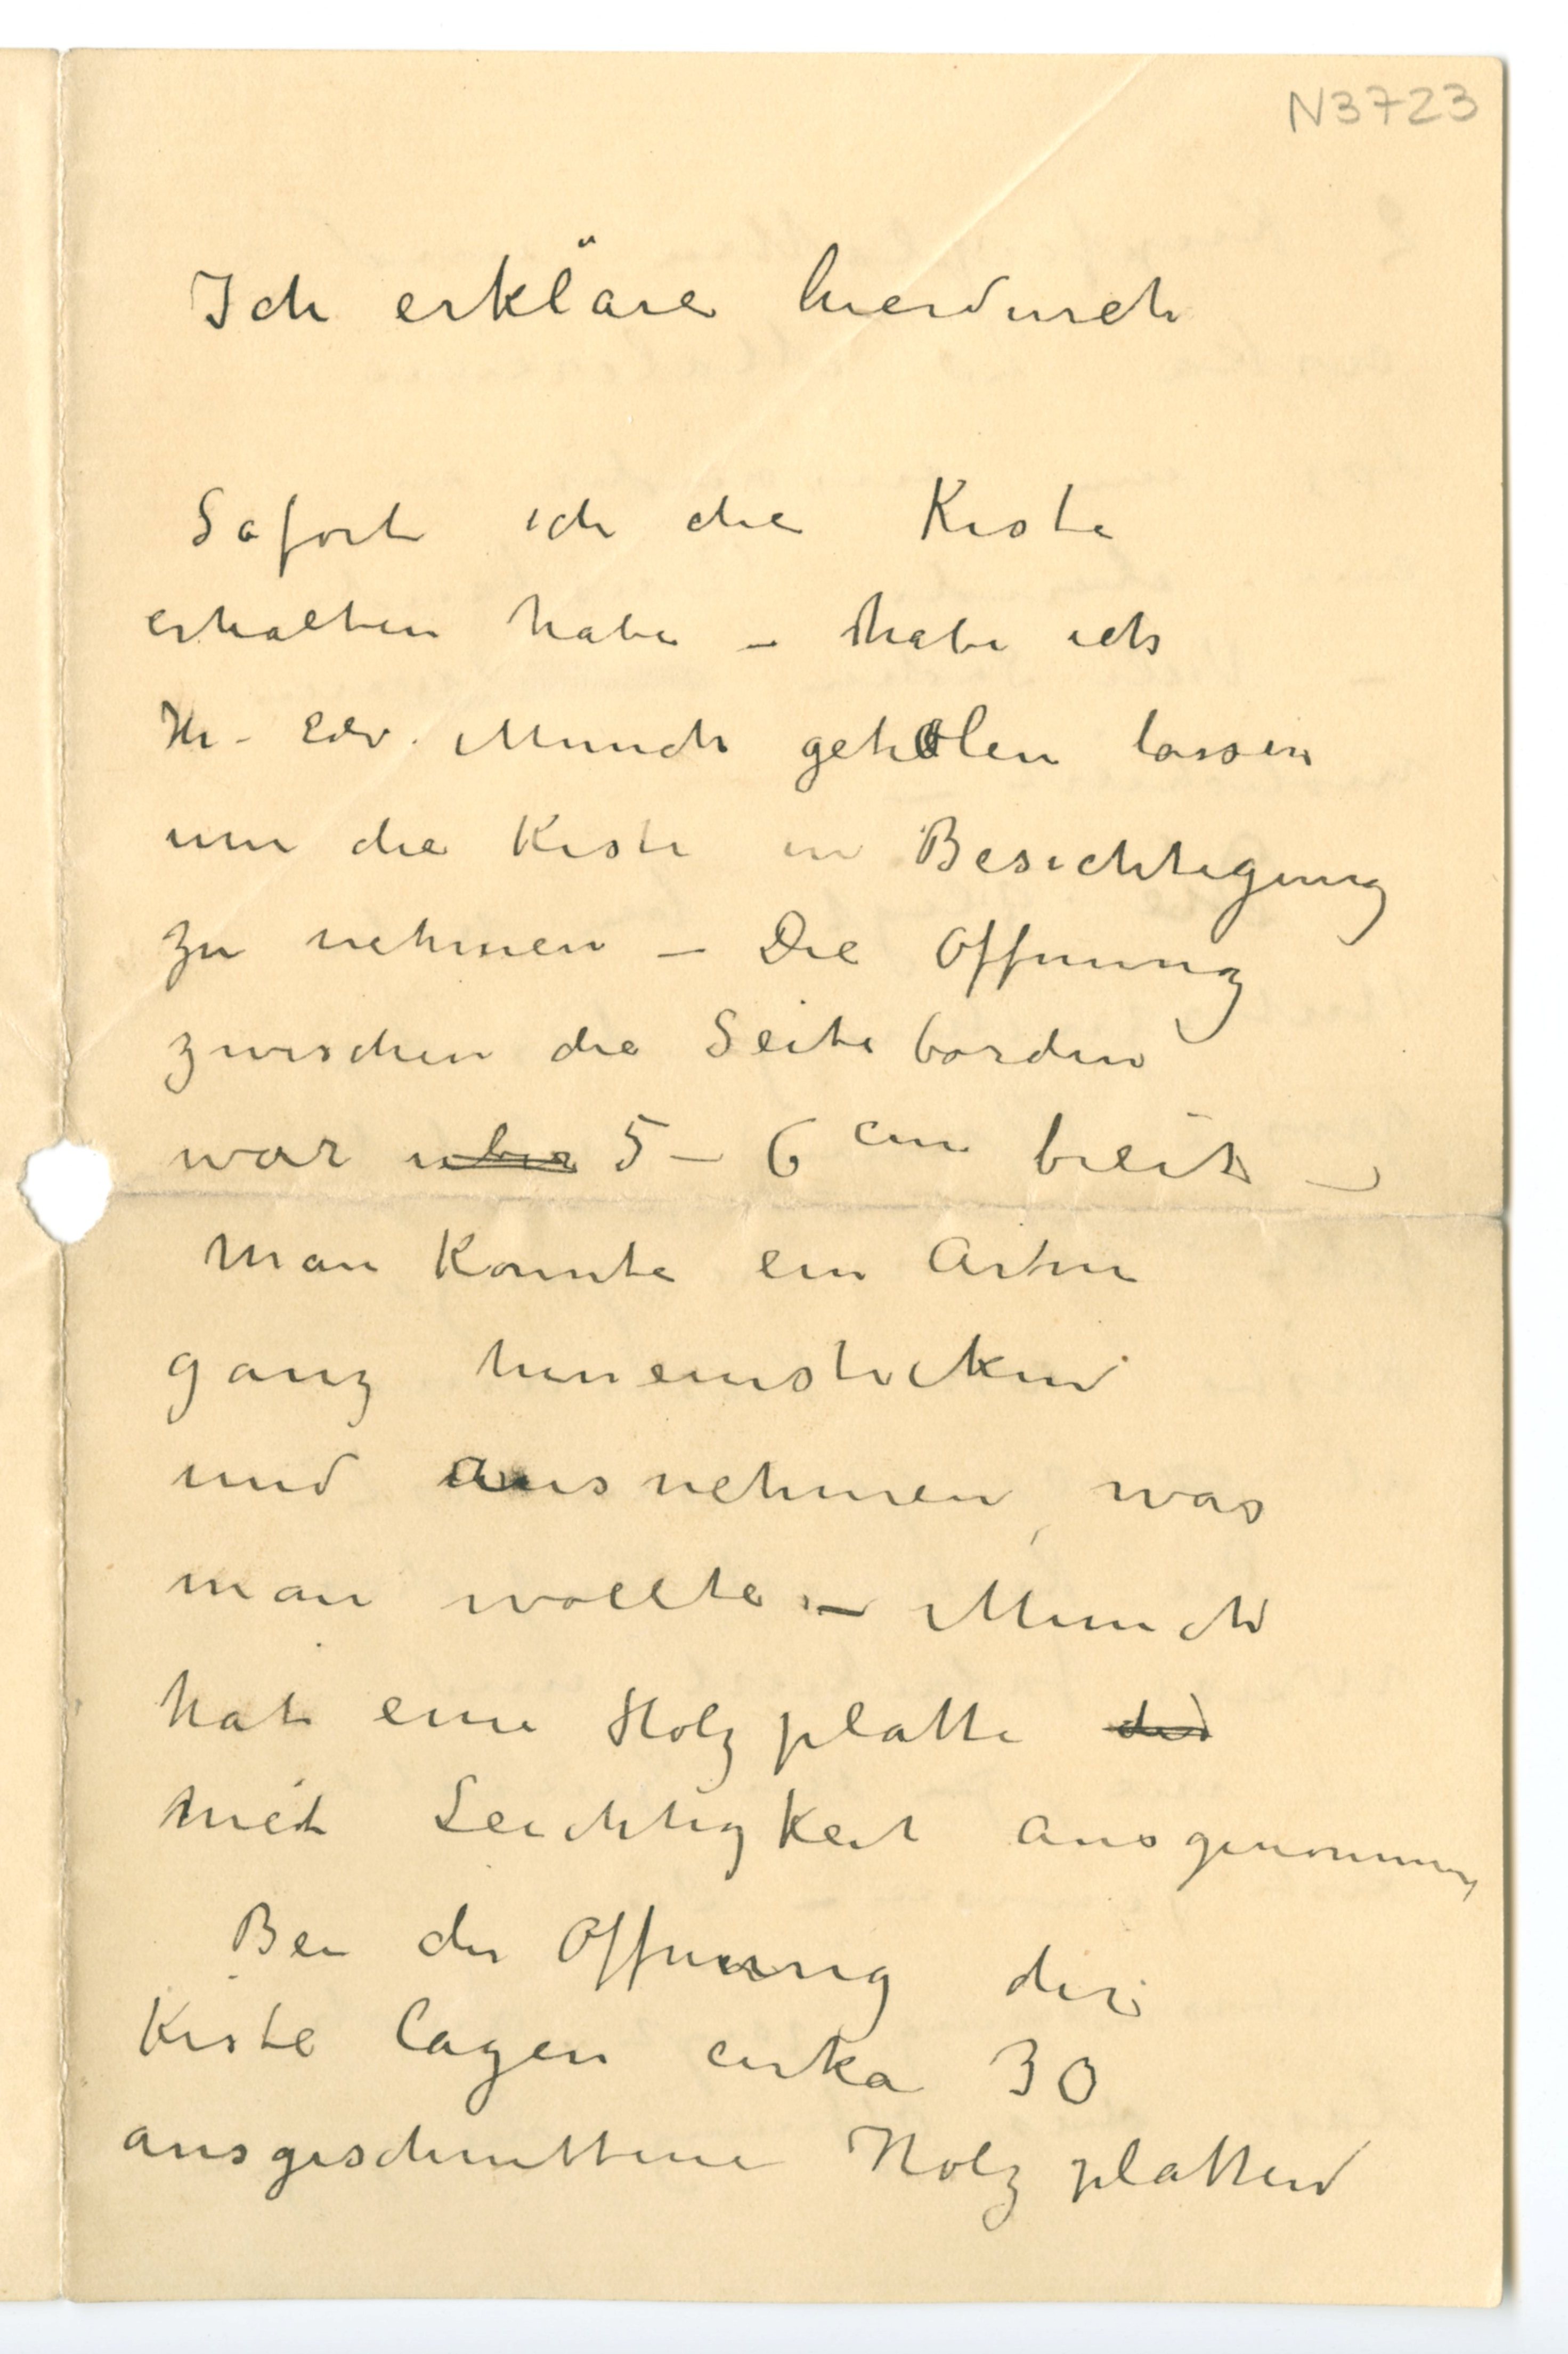 N3723
Ich erkläre hierdurch
Sofort ich die Kiste
erhalten habe – habe ich
Hr. Edv. Munch geholen lassen
um die Kiste in Besichtigung
zu nehmen – Die Offnung
zwischen die Seite borden
war uber 5 – 6 cm breit –
Man konnte ein Arm
ganz hineinstecken
und ausnehmen, was
man wollte – Munch
hat eine Holzplatte
mit Leichtigkeit ausgenommen
Bei der Offnung der
Kiste lagen cirka 30
ausgeschnittene Holzplatten